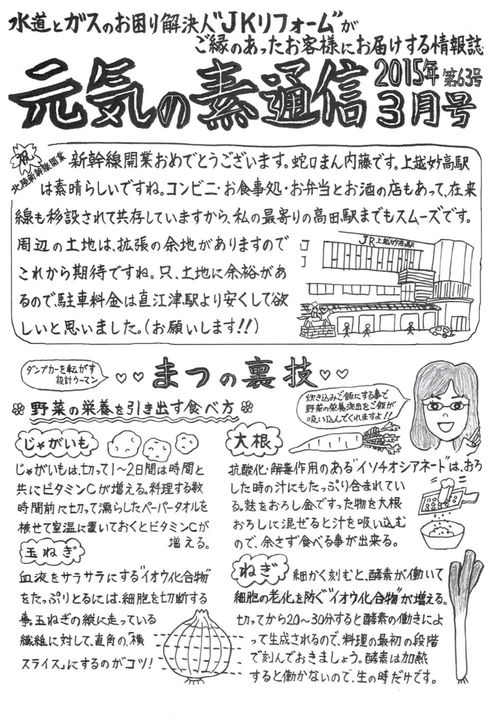 水道とガスのお困り解決人"JKリフォーム"が
ご縁のあったお客様にお届けする情報誌
元気の素通信 2015年 第63号
3月号
祝
北陸新幹線開業
新幹線開業おめでとうございます。蛇口まん内藤です。上越妙高駅
は素晴らしいですね。コンビニ・お食事処・お弁当とお酒の店もあって、在来
線も移設されて共存していますから、私の最寄りの高田駅までもスムーズです。
周辺の土地は、拡張の余地がありますので
これから期待ですね。只、土地に余裕があ
るので駐車料金は直江津駅より安くして欲
しいと思いました。(お願いします!!)
JR上越妙高駅
ダンプカーを転がす
設計ウーマン
♡♡まつの裏技♡♡
野菜の栄養を引き出す食べ方
炊き込みご飯にする事で
野菜の栄養流出をご飯が
吸い込んでくれますよ!!
じゃがいも
じゃがいもは、切って1〜2日間は時間と
共にビタミンCが増える。料理する数
時間前に切って、濡らしたペーパータオルを
被せて室温に置いておくとビタミンCが
増える。
大根
抗酸化・解毒作用のある"イソチオシアネート"は、おろ
した時の汁にもたっぷり含まれてい
る。麩をおろし金ですった物を大根
おろしに混ぜると汁を吸い込む
ので、余さず食べる事が出来る。
玉ねぎ
血液をサラサラにする"イオウ化合物"
をたっぷりとるには、細胞を切断する
事。玉ねぎの縦に走っている
繊維に対して、直角の、"横
スライス"にするのがコツ!
ねぎ
細かく刻むと、酵素が働いて
細胞の老化を防ぐ"イオウ化合物"が増える。
切ってから20〜30分すると酵素の働きによ
って生成されるので、料理の最初の段階
で刻んでおきましょう。酵素は加熱
すると働かないので、生の時だけです。